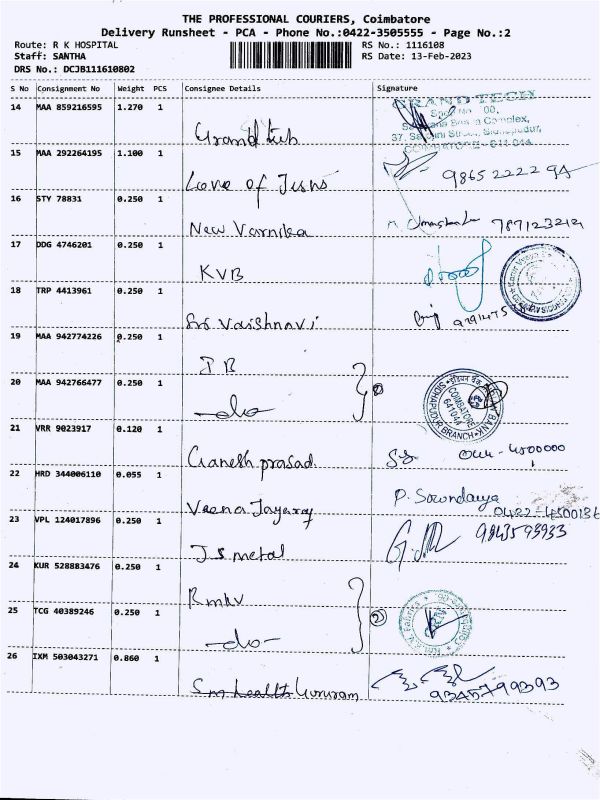 THE PROFESSIONAL COURIERS, Coimbatore
Delivery Runsheet - PCA - Phone No.:0422-3505555 - Page No.:2
Route: R K HOSPITAL RS No.: 1116108
Staff: SANTHA RS Date: 13-Feb-2023
DRS No.: DCJB111610802
S No Consignment No Weight PCS Consignee Details Signature
14 MAA 859216595 1.270 1 GRAND TECH
Complex,
37,
15 MAA 292264195 1.100 1 Love of Jesus
16 STY 78831 0.250 1 New Varnika 7871232121
17 DDG 4746201 0.250 1 KVB
18 TRP 4413961 0.250 1 Sri Vaishnavi
19 MAA 942774226 0.250 1 IB
20 MAA 942766477 0.250 1 -do-
COIMBATORE
641044
21 VRR 9023917 0.120 1 Ganesh prasad 044-4500000
22 HRD 344006110 0.055 1 Veena Jayaraj P. Sowndarya
0422-4500136
23 VPL 124017896 0.250 1 J.S metal 9843593933
24 KUR 528883476 0.250 1 Rmkv
25 TCG 40389246 0.250 1 -do- 2
26 IXM 503043271 0.860 1 Sm health 9345799393